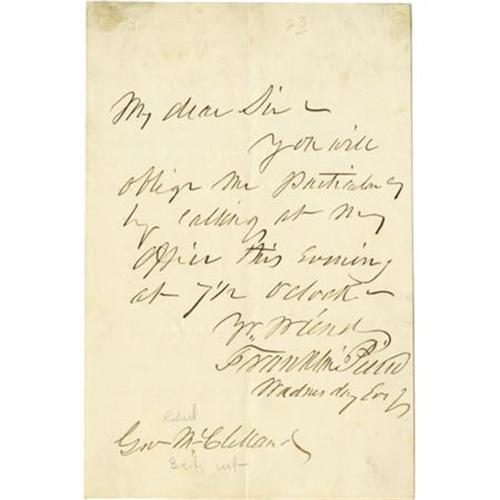 23
My dear Sir –
You will
oblige me particularly
by calling at my
Office this Evening
at 7½ O'clock –
Yr. friend
Franklin Pierce
Wednesday Evg
Robert
Gov McClelland